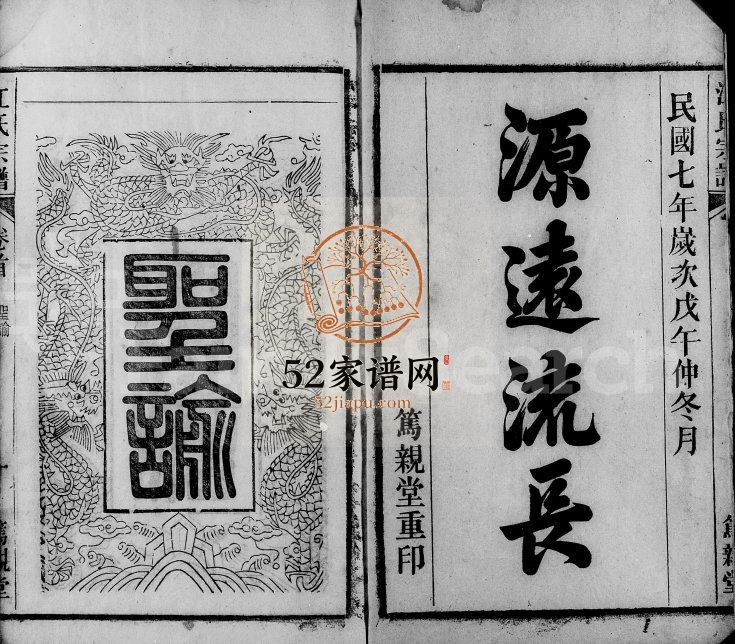 江氏宗譜
民國七年歲次戊午仲冬月
源遠流長
篤親堂重印
篤親堂
聖諭
江氏宗譜
卷首
聖諭
一
篤親堂
52家谱网
52jiapu.com